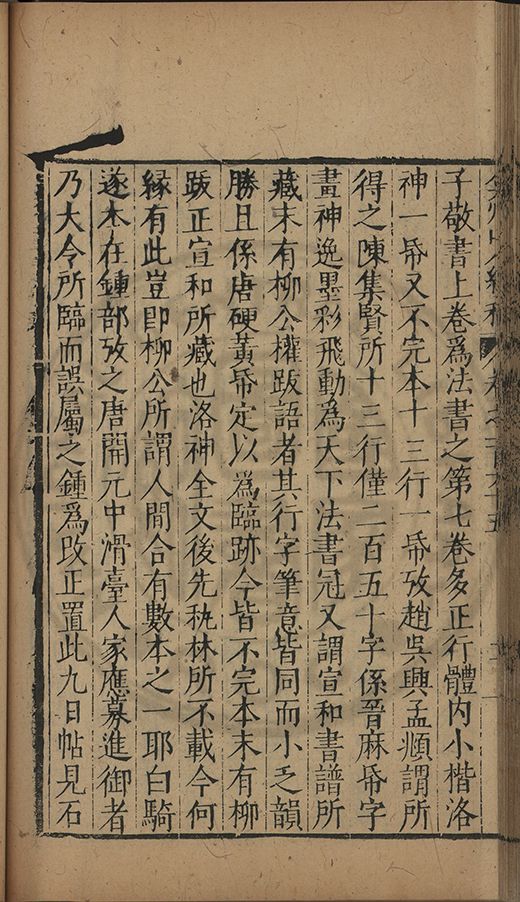 子敬書上卷爲法書之第七卷多正行體内小楷洛
神一帋又不完本十三行一帋攷趙吳興孟頫謂所
得之陳集賢所十三行僅二百五十字係晉麻帋字
畫神逸墨彩飛動爲天下法書冠又謂宣和書譜所
藏末有柳公權跋語者其行字筆意皆同而小乏韻
勝且係唐硬黃帋定以爲臨跡今皆不完本末有柳
跋正宣和所藏也洛神全文後先秇林所不載今何
縁有此豈即柳公所謂人間合有數本之一耶白騎
遂本在鍾部攷之唐開元中滑臺人家應募進御者
乃大令所臨而誤屬之鍾爲改正置此九日帖見石